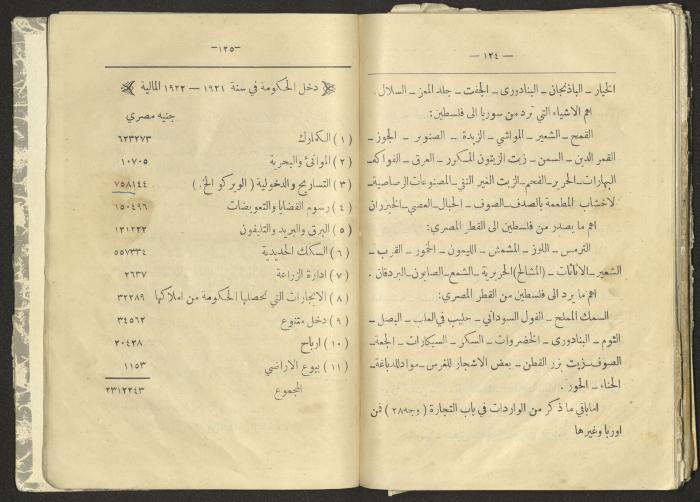 — ١٢٤ —
الخيار ـ الباذنجان ـ البنادورى ـ الجفت ـ جلد المعز ـ السلال .
اهم الاشياء التي ترد من سوريا الى فلسطين:
القمح ـ الشعير ـ المواشي ـ الزبدة ـ الصنوبر ـ الجوز ـ
القمر الدين ـ السمن ـ زيت الزيتون المكرر ـ العرق ـ الفواكه ـ
البهارات ـ الحرير ـ الفحم ـ الزيت الغير النقي ـ المصنوعات الرصاصية ـ
لاخشاب المطعمة بالصدف ـ الصوف ـ الحبال ـ العصي ـ الخيزران
اهم ما يصدر من فلسطين الى القطر المصري:
الترمس ـ اللوز ـ المشمش ـ الليمون ـ الخمور ـ القرب ـ
الشعير ـ الاثاثات ـ (المشالح) الحريرية ـ الشمع ـ الصابون ـ البردقان .
اهم ما يرد الى فلسطين من القطر المصري:
السمك المملح ـ الفول السوداني ـ حليب في العلب ـ البصل ـ
الثوم ـ البنادورى ـ الخضروات ـ السكر ـ السيكارات ـ الجعة ـ
الصوف ـ زيت بزر القطن ـ بعض الاشجار للغرس ـ مواد للدباغة ـ
الحناء ـ الحور .
اما باقي ما ذكر من الواردات في باب التجارة ( وجه ٢٨٩ ) فمن
اوربا وغيرها
— ١٢٥ —
دخل الحكومة في سنة ١٩٢١ — ١٩٢٢ المالية
جنيه مصري
( ١ ) الكمارك ٦٢٣٢٧٣
( ٢ ) الموانئ والبحرية ١٠٧٠٥
( ٣ ) التساريح والدخولية ( الويركو الخ. ) ٧٥٨١٤٤
( ٤ ) رسوم القضايا والتعويضات ١٥٠٤٩٦
( ٥ ) البرق والبريد والتليفون ١٢١٢٢٢
( ٦ ) السكك الحديدية ٥٥٧٣٣٤
( ٧ ) ادارة الزراعة ٢٦٣٧
( ٨ ) الايجارات التي تحصلها الحكومة من املاكها ٣٢٢٨٩
( ٩ ) دخل متنوع ٣٤٥٦٢
( ١٠ ) ارباح ٢٠٤٢٨
( ١١ ) بيوع الاراضي ١١٥٣
المجموع ٢٣١٢٢٤٣